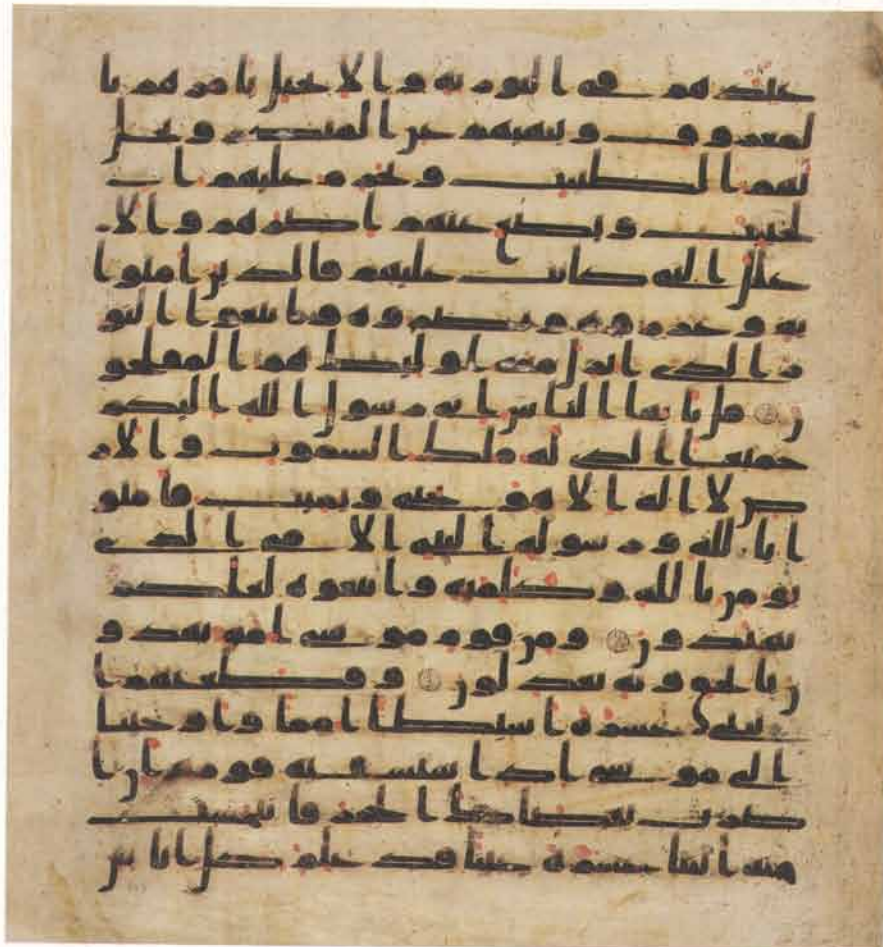 عندهم في التورية والانجيل يامرهم با
لمعروف وينهيهم عن المنكر ويحل
لهم الطيبت ويحرم عليهم ا
لخبيث ويضع عنهم اصرهم والا
غلل التي كانت عليهم فالذين امنوا
به وعزروه ونصروه واتبعوا النو
ر الذي انزل معه اوليك هم المفلحو
ن قل يايها الناس اني رسول الله اليكم
جميعا الذي له ملك السموت والار
ض لا اله الا هو يحيي ويميت فامنو
ا بالله ورسوله النبي الامي الذي
يومن بالله وكلمته واتبعوه لعلكم
تهتدون ومن قوم موسى امة يهدو
ن بالحق وبه يعدلون وقطعنهم ا
ثنتي عشرة اسبطا امما واوحينا
الى موسى اذ استسقيه قومه ان ا
ضرب بعصاك الحجر فانبجست
منه اثنتا عشرة عينا قد علم كل اناس